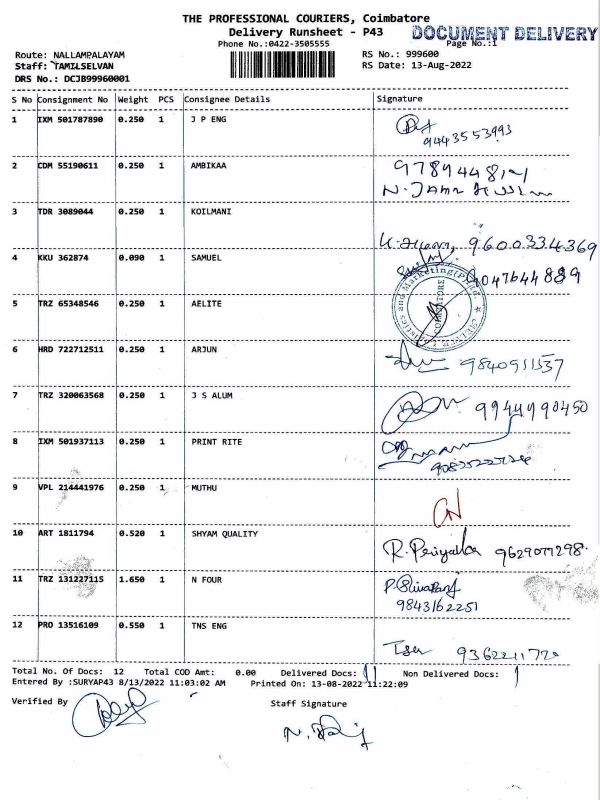 THE PROFESSIONAL COURIERS, Coimbatore
Delivery Runsheet - P43
DOCUMENT DELIVERY
Phone No.:0422-3505555
Page No.:1
Route: NALLAMPALAYAM
RS No.: 999600
Staff: TAMILSELVAN
RS Date: 13-Aug-2022
DRS No.: DCJB99960001
S No Consignment No Weight PCS Consignee Details Signature
1 IXM 501787890 0.250 1 J P ENG
9443553993
2 CDM 55190611 0.250 1 AMBIKAA
3 TDR 3089044 0.250 1 KOILMANI
9600334369
4 KKU 362874 0.090 1 SAMUEL
9047644889
5 TRZ 65348546 0.250 1 AELITE
6 HRD 722712511 0.250 1 ARJUN
7 TRZ 320063568 0.250 1 J S ALUM
9944990450
8 IXM 501937113 0.250 1 PRINT RITE
9 VPL 214441976 0.250 1 MUTHU
10 ART 1811794 0.520 1 SHYAM QUALITY
R. 9629077298
11 TRZ 131227115 1.650 1 N FOUR
9843162251
12 PRO 13516109 0.550 1 TNS ENG
Total No. Of Docs: 12 Total COD Amt: 0.00 Delivered Docs: 11 Non Delivered Docs: 1
Entered By :SURYAP43 8/13/2022 11:03:02 AM Printed On: 13-08-2022 11:22:09
Verified By
Staff Signature